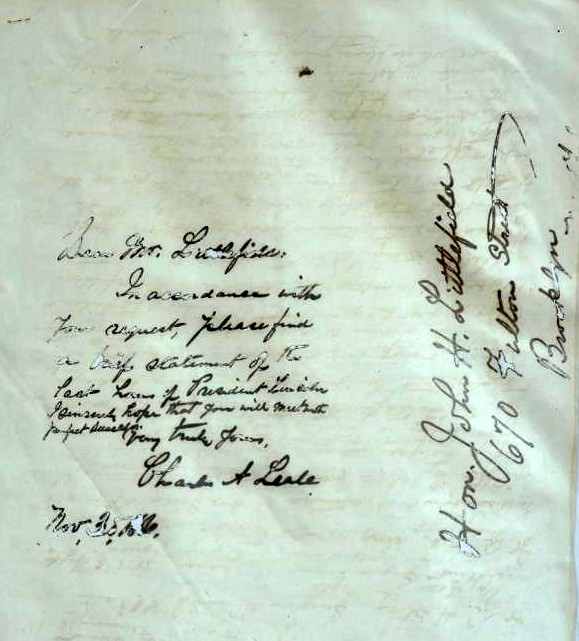 Dear Mr. Littlefield:
In accordance with
your request, please find
a brief statement of the
last hours of President Lincoln
I sincerely hope that you will meet with
perfect success.
Very truly yours,
Charles A Leale
Nov.
Hon. John H. Littlefield
670 Fulton Street
Brooklyn